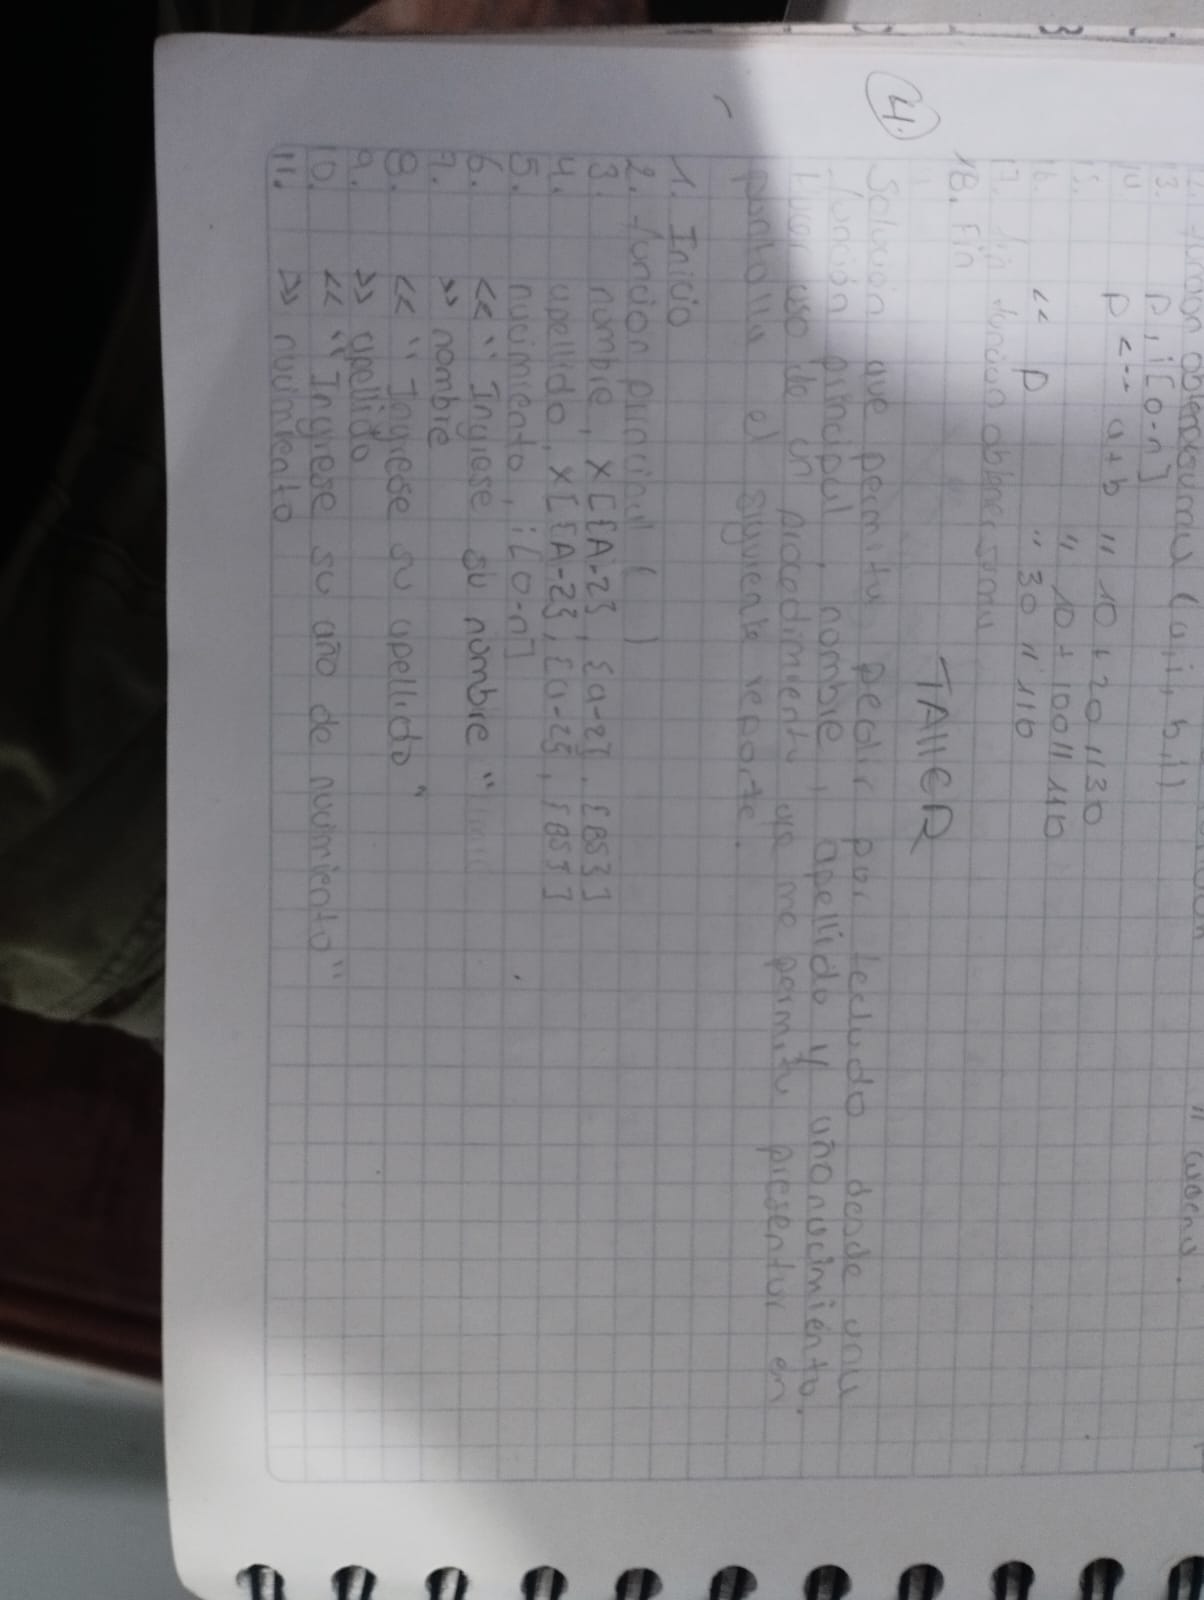 función obtenersuma (a,i, b,i)
13. p, i[0-n]
14 p <-- a+b " 10 + 20 //30
15. " 10 + 100 // 110
16. << p " 30 // 110
17. fin funcion obtenersuma
18. Fin
TAllER
4. Solucion que permita pedir por teclado desde una
función principal, nombre, apellido y año nacimiento.
hacer uso de un procedimiento que me permita presentar en
pantalla el siguiente reporte.
1. Inicio
2. funcion principal ( )
3. nombre, x [{A-Z}, {a-z}, {853}]
4. apellido, x [{A-Z}, {a-z}, {853}]
5. nacimiento, i [0-n]
6. << "Ingrese su nombre"
7. >> nombre
8. << "Ingrese su apellido"
9. >> apellido
10. << "Ingrese su año de nacimiento"
11. >> nacimiento